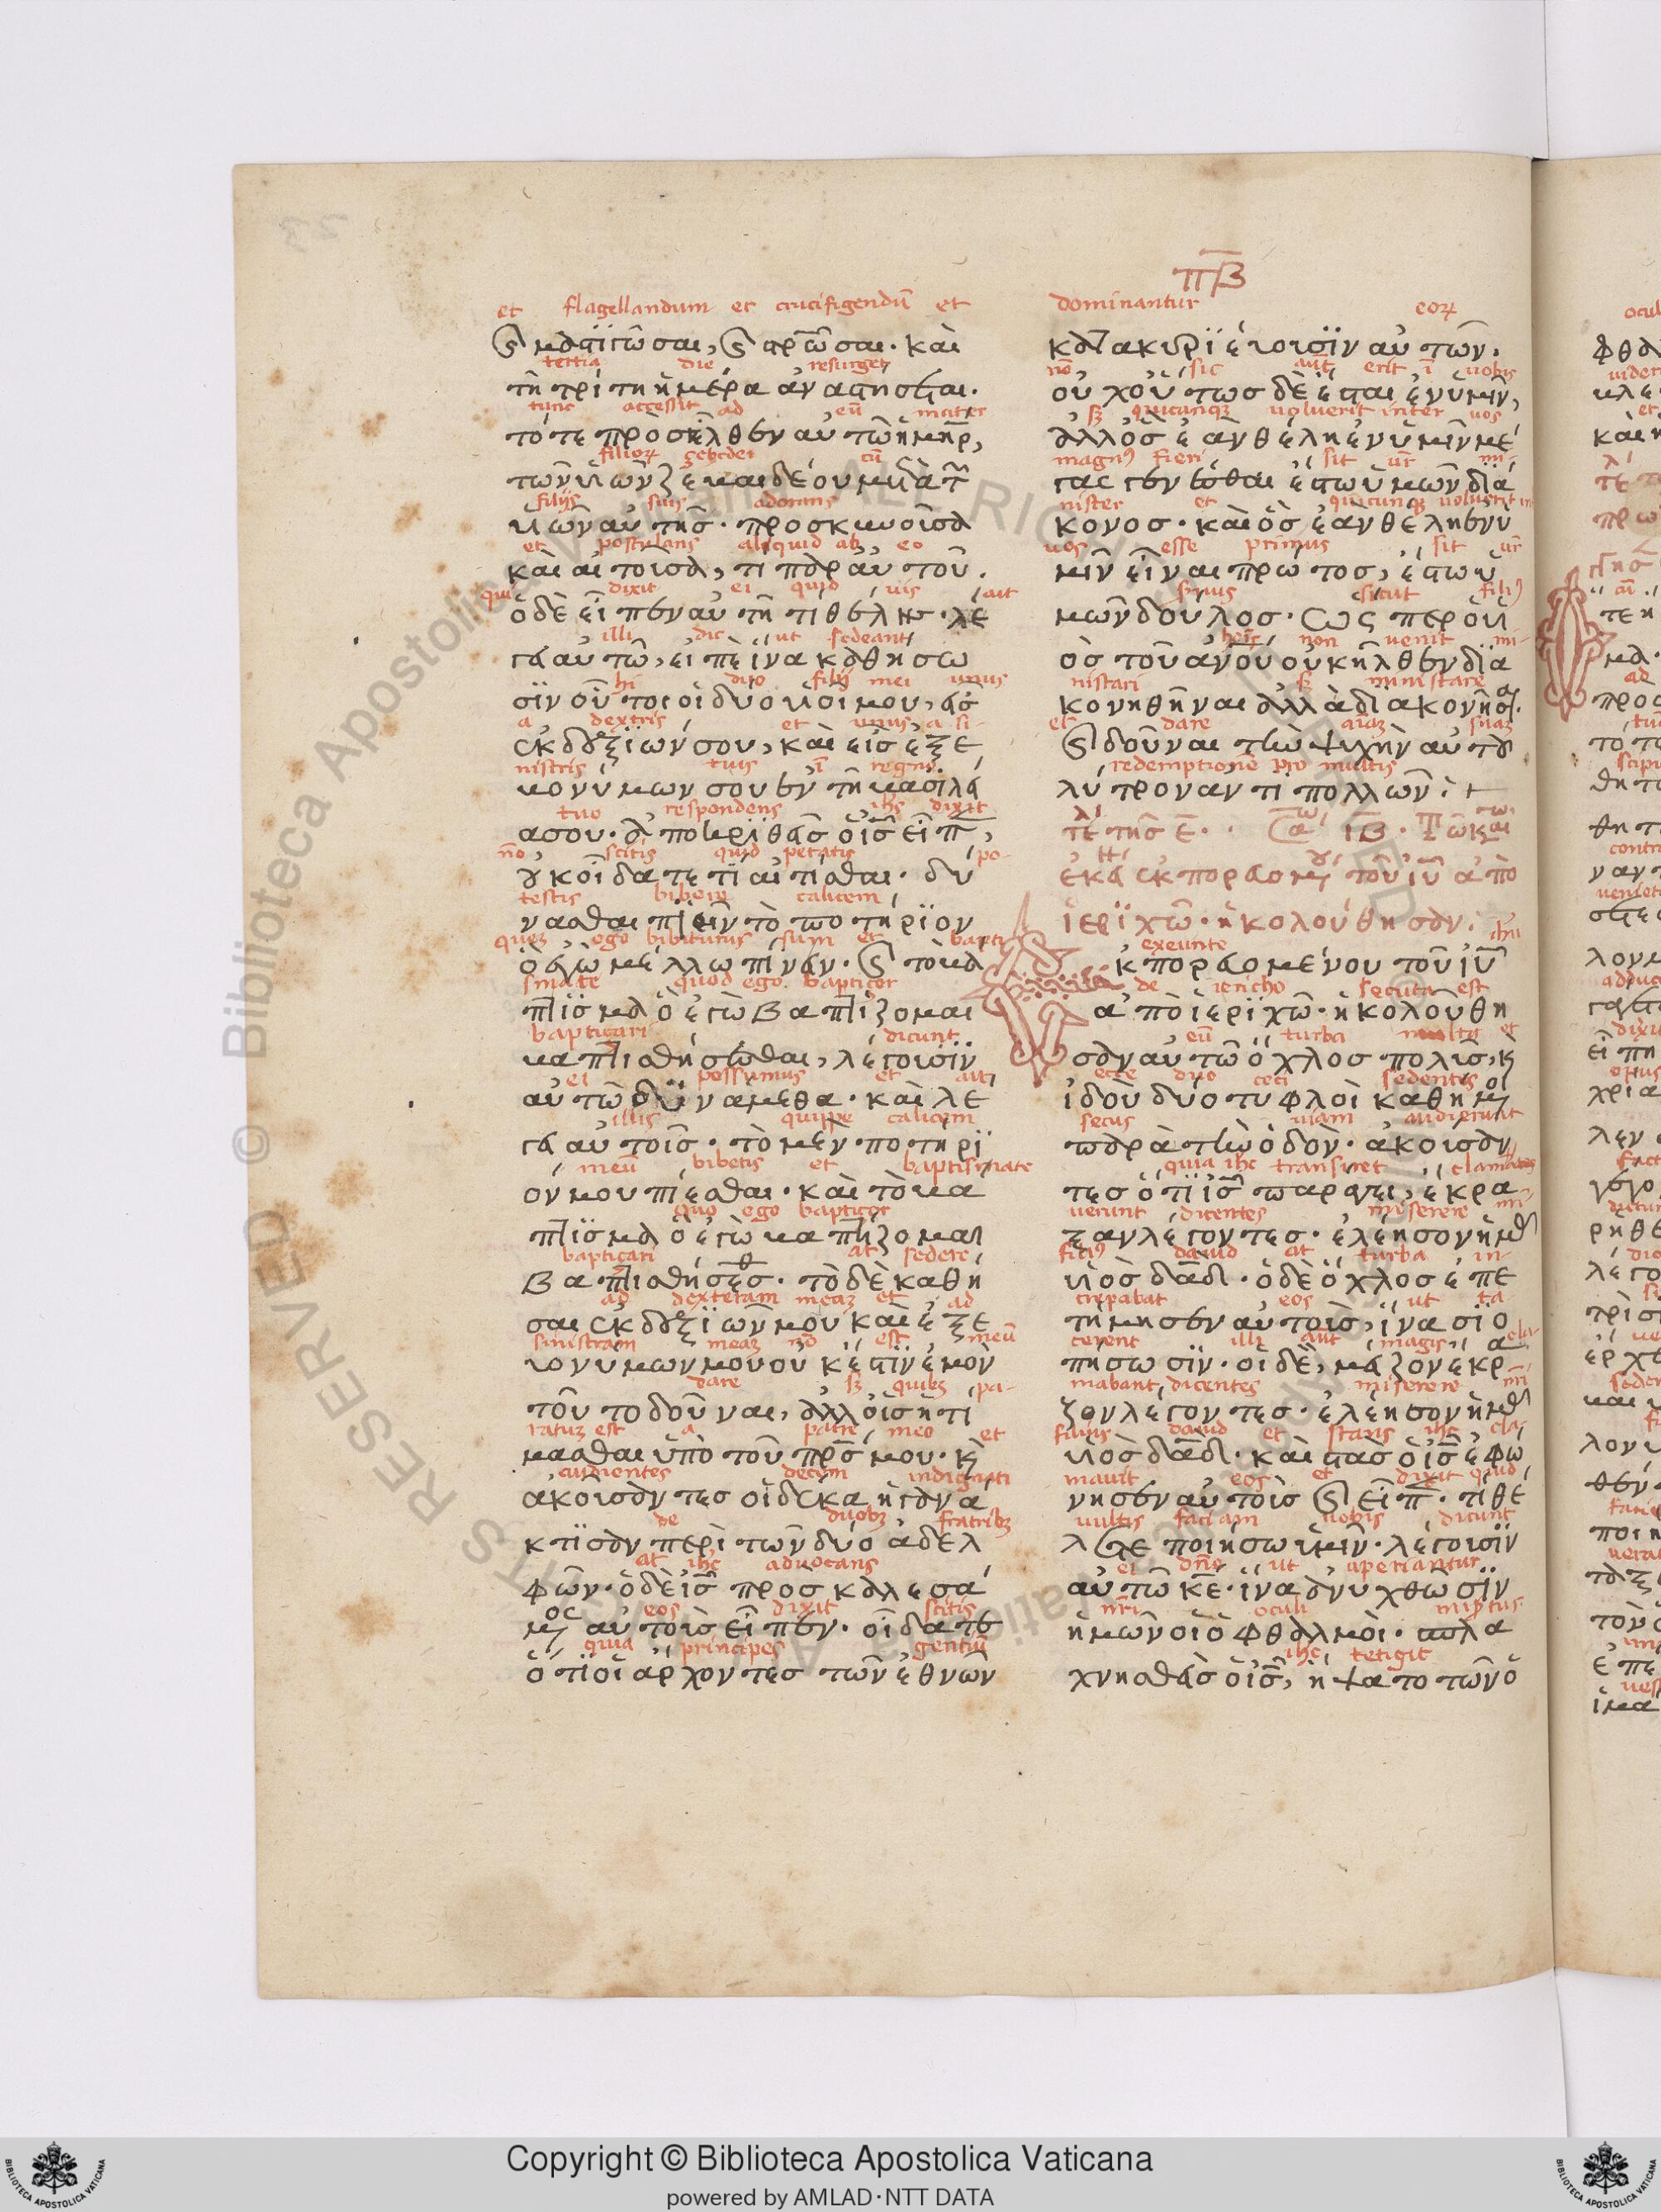 π̅β̅
et flagellandum et crucifigendū et
ϗ μαστιγῶσαι, ϗ στρῶσαι· καὶ
tertia die resurget
τῆ τρίτη ἡμέρα ἀναστήσεται·
tunc accessit ad eū mater
τότε προσῆλθεν αὐτῶ ἡ μηρ,
filiorum zebedei cū
τῶν υἱῶν ζεβαιδέου μετὰ τ
filijs suis adorans
υἱῶν αὐτῆς· προσκυνοῦσα
et postulans aliquid ab eo
καὶ αἰτοῦσά, τι παρ αὐτοῦ.
qui dixit ei quid uis ait
ὁ δὲ εἶπεν αὐτῆ τί θέλεις· λέ
illi dic ut sedeant
γει αὐτῶ, εἰπὲ ἵνα καθήσω
hi duo filij mei unus
σϊν οὗτοι οἱ δύο υἱοί μου, εἷς
a dextris et unus a si-
ἐκ δεξϊῶν σου, καὶ εἷς ἐξ ε
nistris tuis ī regno
βονύμων σου ἐν τῆ βασϊλεί
tuo respondens ihs dixit
α σου· ἀποκριθεὶς ὁ ἰς̅ εἶπ,
nō scitis quid petatis po-
οὐκ οἴδατε τί αἰτεῖσθαι· δύ
testis bibere calicem
νασθαι πιεῖν τὸ ποτήριον
quem ego bibiturus sum et bapti
ὃ ἐγὼ μέλλω πίνειν· ϗ τὸ βά
smate quod ego baptizor
πτϊσμα ὃ ἐγὼ βαπτίζομαι
baptizari dicunt
βαπτισθήσεσθαι, λέγουσϊν
ei possumus et ait
αὐτῶ δϋνάμεθα· καὶ λέ
illis quippe calicem
γει αὐτοῖς· τὸ μὲν ποτήρϊ
meū bibetis et baptismate
όν μου πίεσθαι· καὶ τὸ βά
quo ego baptizor
πτϊσμα ὃ ἐγὼ βαπτίζομαι
baptizari at sedere
βαπτισθήσεσθ· τὸ δὲ καθῆ
ad dexteram meam et ad
σαι ἐκ δεξϊῶν μου καὶ ἐξ ε
sinistram meam nō est meū
βονύμων μου οὐκ ἔστϊν ἐμὸν
dare sed quibus pa-
τοῦτο δοῦναι, ἀλλ οἷς ἡτί
ratum est a patre meo et
μασθαι ὑπὸ τοῦ πρς̅ μου· ϗ
audientes decem indignati
ἀκούσαντες οἱ δέκα ἠγανά
de duobus fratribus
κτϊσαν περὶ τῶν δύο ἀδελ
at ihs aduocans
φῶν· ὁ δὲ ἰς̅ προσκαλεσά
eos dixit scitis
μενος αὐτοὺς εἶπεν· οἴδατε
quia principes gentiū
ὅτϊ οἱ ἄρχοντες τῶν ἐθνῶν
dominantur eorum
κατακυρϊεύουσϊν αὐτῶν.
nō sic aut erit ī uobis
οὐχ οὕτως δὲ ἔσται ἐν ὑμῖν,
sed quicunque uoluerit inter uos
ἀλλ ὃς ἐὰν θέλη ἐν ὑμῖν μέ
magnus fieri sit ur̄ mi-
γας γενέσθαι ἔστω ὑμῶν δϊά
nister et quicunque uoluerit in
κονος· καὶ ὃς ἐὰν θέλη ἐν ὑ
uos esse primus sit ur̄
μῖν εἶναι πρῶτος, ἔστω ὑ
seruus sicut filius
μῶν δοῦλος· ὥς περ ὁ υἱ
hois non uenit mi-
ὸς τοῦ ανου οὐκ ἦλθεν δϊα
nistrari sed ministrare
κονηθῆναι ἀλλὰ δϊακονῆσαι.
et dare aiam suam
ϗ δοῦναι τὴν ψυχὴν αὐτοῦ
redemptionē pro multis
λύτρον ἀντὶ πολλῶν:+
ἐκπορευομέ τοῦ ἰῦ ἀπὸ
ἱερϊχῶ· ἠκολούθησαν:
exeunte
κπορευομένου τοῦ ἰῦ
de iericho secuta est
ἀπὸ ἱερϊχῶ· ἠκολούθη
eū turba multa et
σαν αὐτῶ ὄχλος πολὺς, ϗ
ecce duo ceci sedentes
ἰδοὺ δύο τυφλοὶ καθήμενοι
secus uiam audierunt
παρὰ τὴν ὁδὸν· ἀκούσαν
quia ihc transiret clamaue
τες ὅτϊ ἰς̅ παράγει, ἔκρα
uerunt dicentes miserere nri
ξαν λέγοντες· ἐλέησον ἡμᾶς
filius dauid at turba in-
υἱὸς δαδ̅· ὁ δὲ ὄχλος ἐπε
crepabat eos ut ta-
τήμησεν αὐτοὺς, ἵνα σϊο
cerent illi aut magis cla-
πήσωσϊν· οἱ δὲ, μείζον ἔκρα
mabant dicentes miserere nri
ζον λέγοντες· ἐλέησον ἡμᾶς
filius dauid et stans ihs cla-
υἱὸς δαδ̅· καὶ στὰς ὁ ἰς̅ ἐφώ
mauit eos et dixit quid
νησεν αὐτοὺς ϗ εἶπ· τί θέ
uultis faciam uobis dicunt
λετε ποιήσω ὑμῖν· λέγουσϊν
ei dne ut aperiantur
αὐτῶ κε̅· ἵνα ἀνυχθῶσϊν
nri oculi misertus
ἡμῶν οἱ ὀφθαλμοὶ· σπλα
ihc tetigit
χνησθεὶς ὁ ἰς̅, ἥψατο τῶν ὀ
Copyright © Biblioteca Apostolica Vaticana
powered by AMLAD·NTT DATA